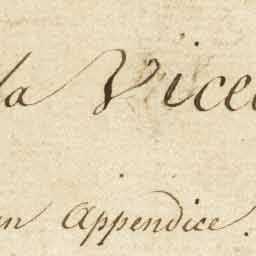 la Vice
un Appendice.